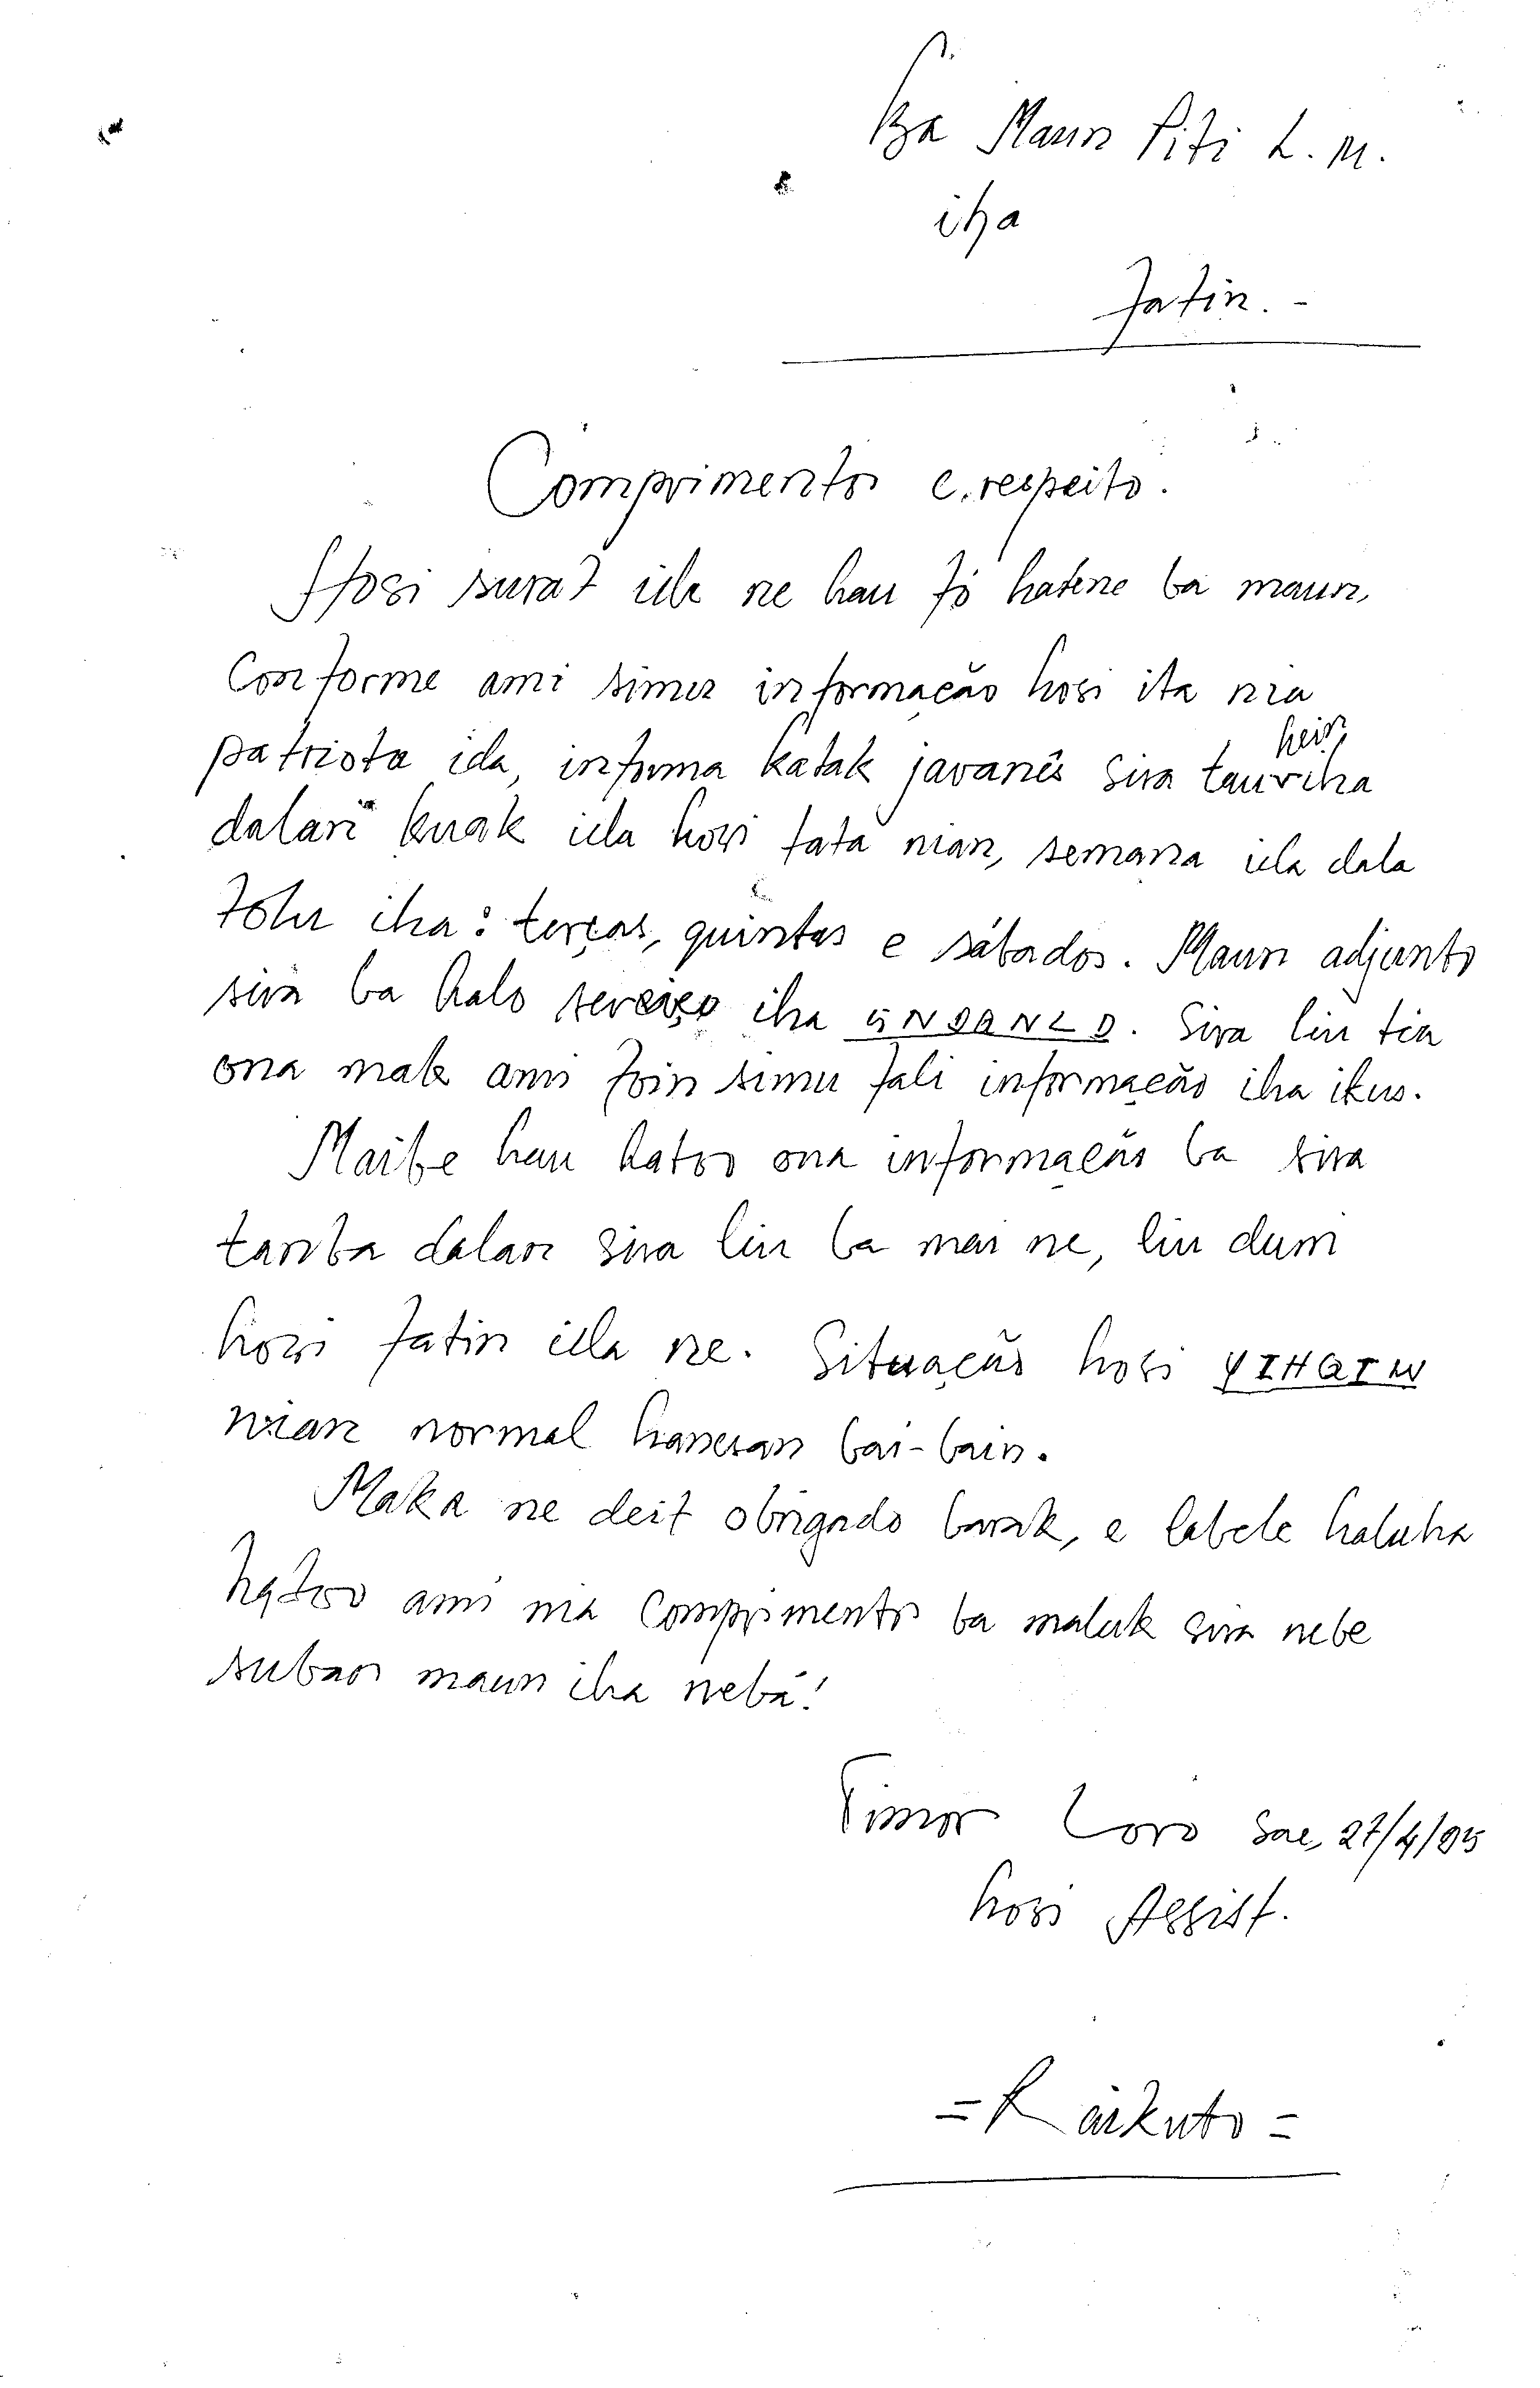 Ba Maun Piti L. M.
iha
fatin. -
Comprimentos e. respeito.
Hosi surat ida ne hau fó hatene ba maun,
Conforme ami simu informação hosi ita nia
patriota ida, informa katak javanês sira tau iha
hein
dalan kuak ida hosi fatá nian, semana ida dala
tolu iha: terças, quintas e sábados. Maun adjunto
sira ba halo serviço iha. Sira liu tia
ona mak ami foin simu fali informação iha ikus.
Maibe hau hatoo ona informação ba sira
tanba dalan sira liu ba mai ne, liu duni
hosi fatin ida ne. Situação hosi
nian normal hanesan bai-bain.
Maka ne deit obrigado barak, e labele haluha
hatoo ami nia comprimentos ba maluk sira nebe
maun iha nebá!
Timor Loro Sae, 27/4/95
hosi Assist.
= Kaikuto =